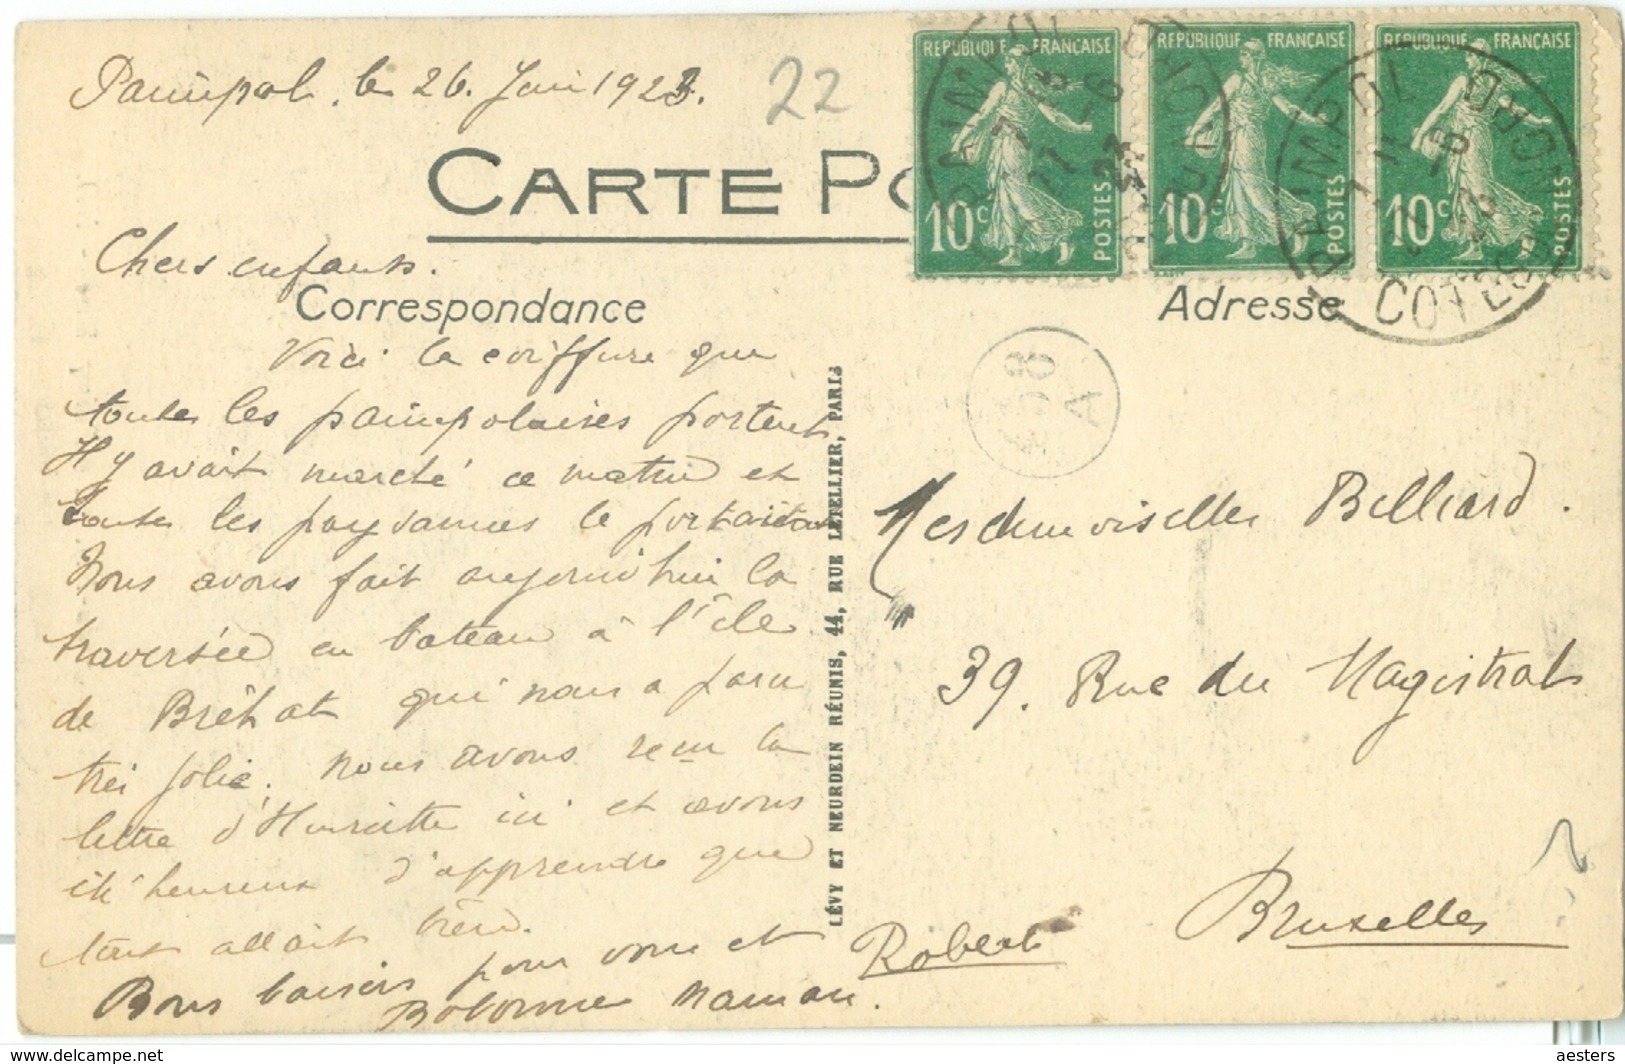 Paimpol, le 26 Juin 1923.
22
CARTE PO
REPUBLIQUE FRANÇAISE
10c POSTES
REPUBLIQUE FRANÇAISE
10c POSTES
REPUBLIQUE FRANÇAISE
10c POSTES
PAIMPOL
COTES DU NORD
PAIMPOL
COTES DU NORD
Chers enfants.
Correspondance
Adresse
Voici la coiffure que
toutes les paimpolaises portent
Il y avait marché ce matin et
toutes les paysannes le portaient
Nous avons fait aujourd'hui la
traversée en bateau à l'île
de Bréhat qui nous a paru
très jolie. nous avons reçu la
lettre d'Henriette ici et avons
été heureux d'apprendre que
tout allait bien.
Bons baisers pour vous et
Bobonne Maman.
Robert
LÉVY ET NEURDEIN RÉUNIS, 44, RUE LETELLIER, PARIS
A
Mesdemoiselles Billiard.
39. Rue du Magistrat
Bruxelles
aesters